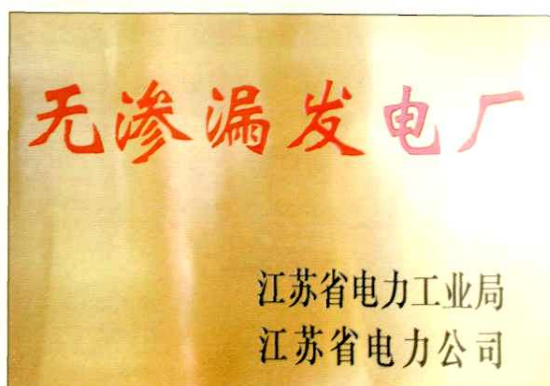 无渗漏发电厂
江苏省电力工业局
江苏省电力公司